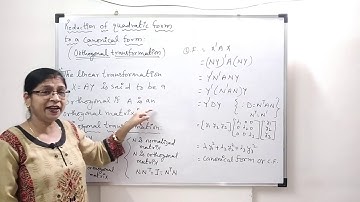 Reduction of quadratic form
to a canonical form:
(Orthogonal transformation)
The linear transformation
X = AY is said to be a
orthogonal if A is an
orthogonal matrix
orthogonal transformation
N is normalized
matrix
N is orthogonal
matrix
N·N' = I = N'N
Q.F. = X'AX
= (NY)'A(NY)
= Y'N'ANY
= Y'(N'AN)Y
= Y'DY { ∴ D = N'AN
N' = N⁻¹
= [y₁ y₂ y₃] [λ₁ 0 0 0 λ₂ 0 0 0 λ₃] [y₁ y₂ y₃]
= λ₁y₁² + λ₂y₂² + λ₃y₃²
= canonical form or C.F.